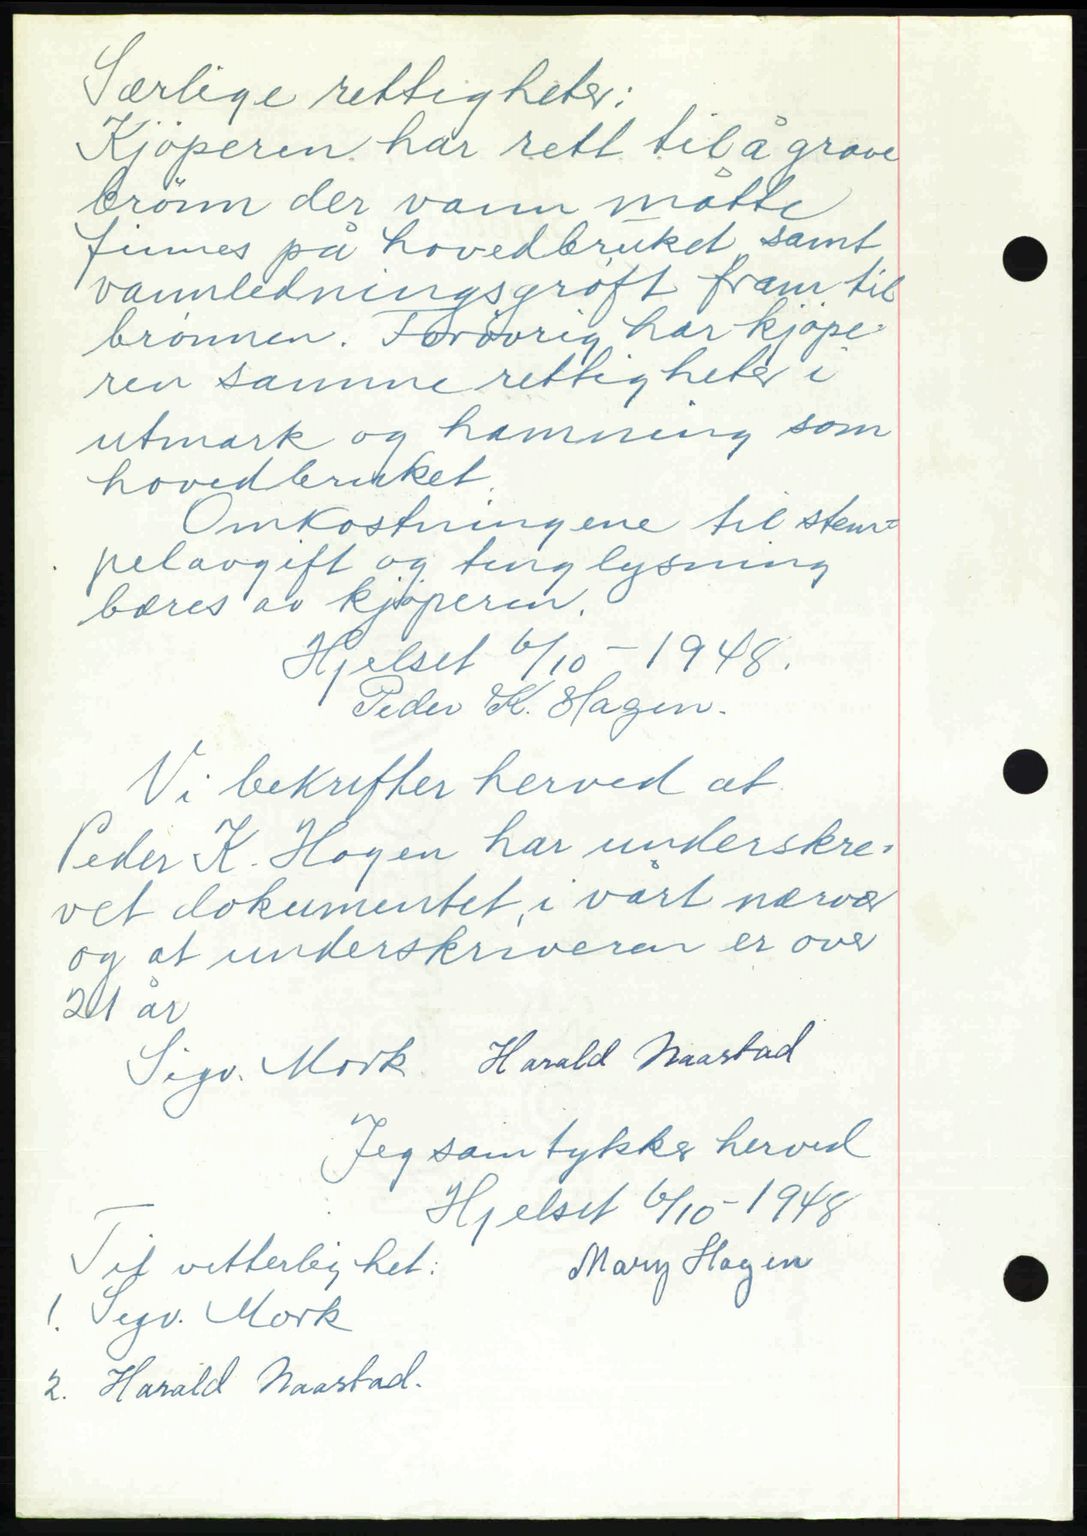 Særlige rettigheter:
Kjöperen har rett til å grave
brönn der vann måtte
finnes på hovedbruket samt
vannledningsgrøft fram til
brønnen. Forövrig har kjøpe-
ren samme rettigheter i
utmark og hamning som
hovedbruket.
Omkostningene til stem=
pelavgift og tinglysning
bæres av kjøperen.
Hjelset 6/10 - 1948.
Peder K. Hagen.
Vi bekrefter herved at
Peder K. Hagen har underskre-
vet dokumentet, i vårt nærvær
og at underskriveren er over
21 år
Sigv. Mork Harald Naastad
Jeg samtykker herved
Hjelset 6/10 - 1948
Til vitterlighet: Mary Hagen
1. Sigv. Mork
2. Harald Naastad.